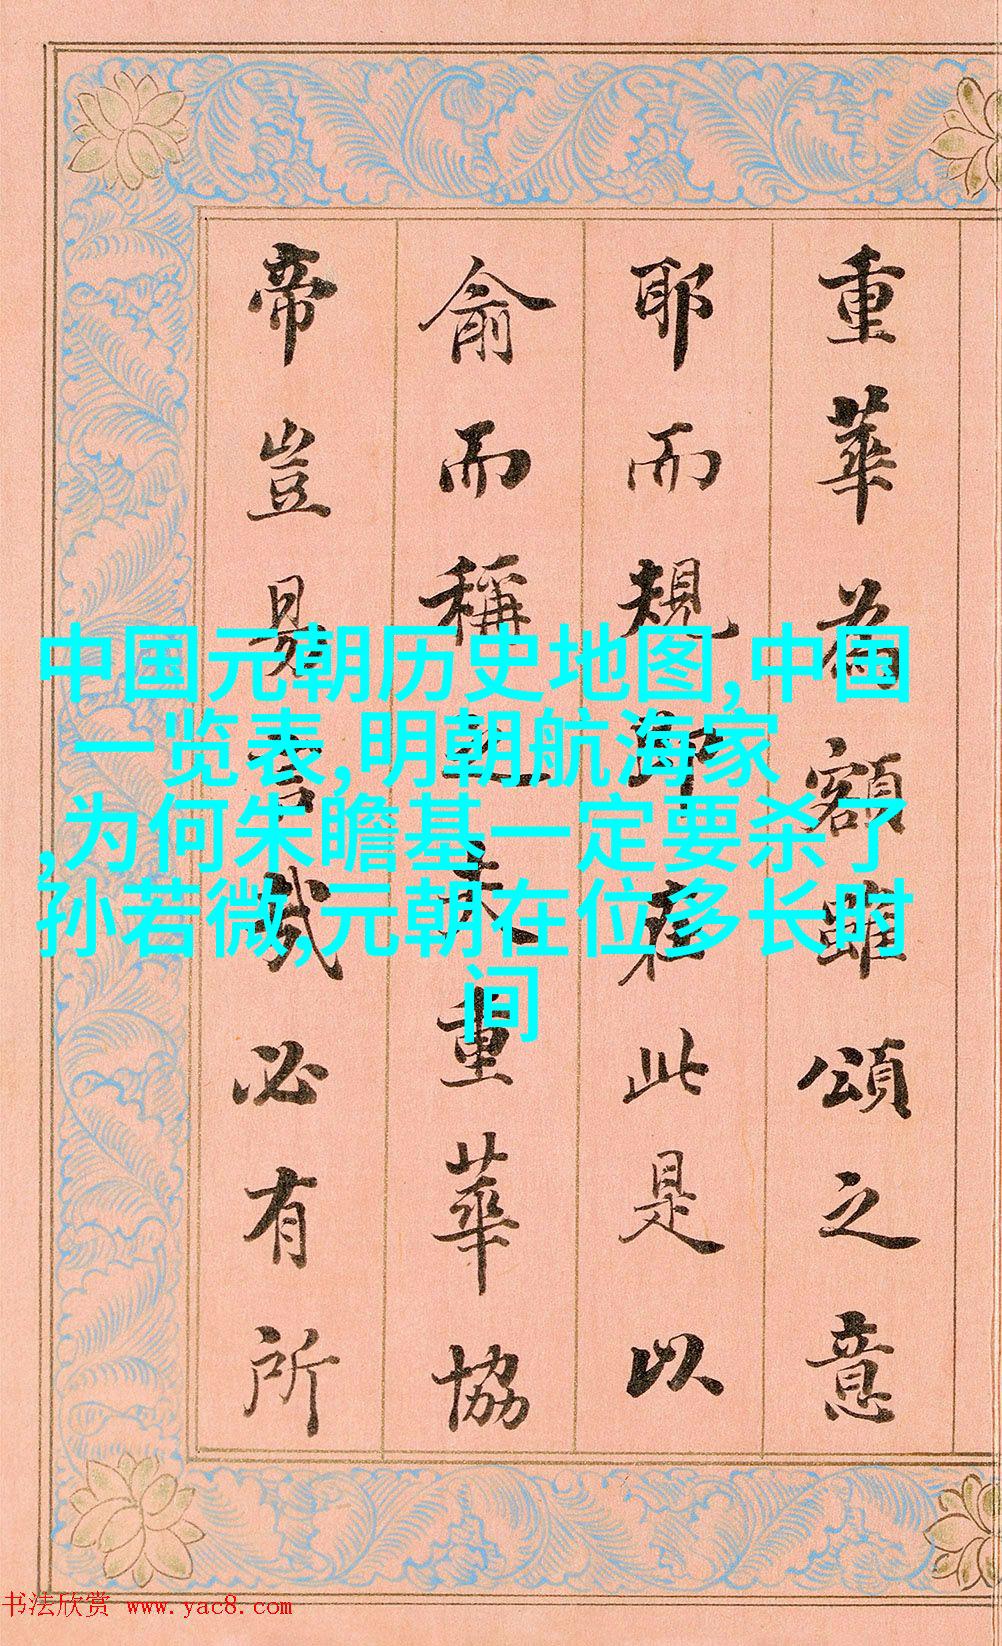 重華為額雖頌之意
耶而規即在此是以
俞而稱未重華協
帝豈易言哉必有所
中国元朝历史地图,中国
一览表,明朝航海家
,为何朱瞻基一定要杀了
孙若微,元朝在位多长时
间
书法欣赏 www.yac8.com